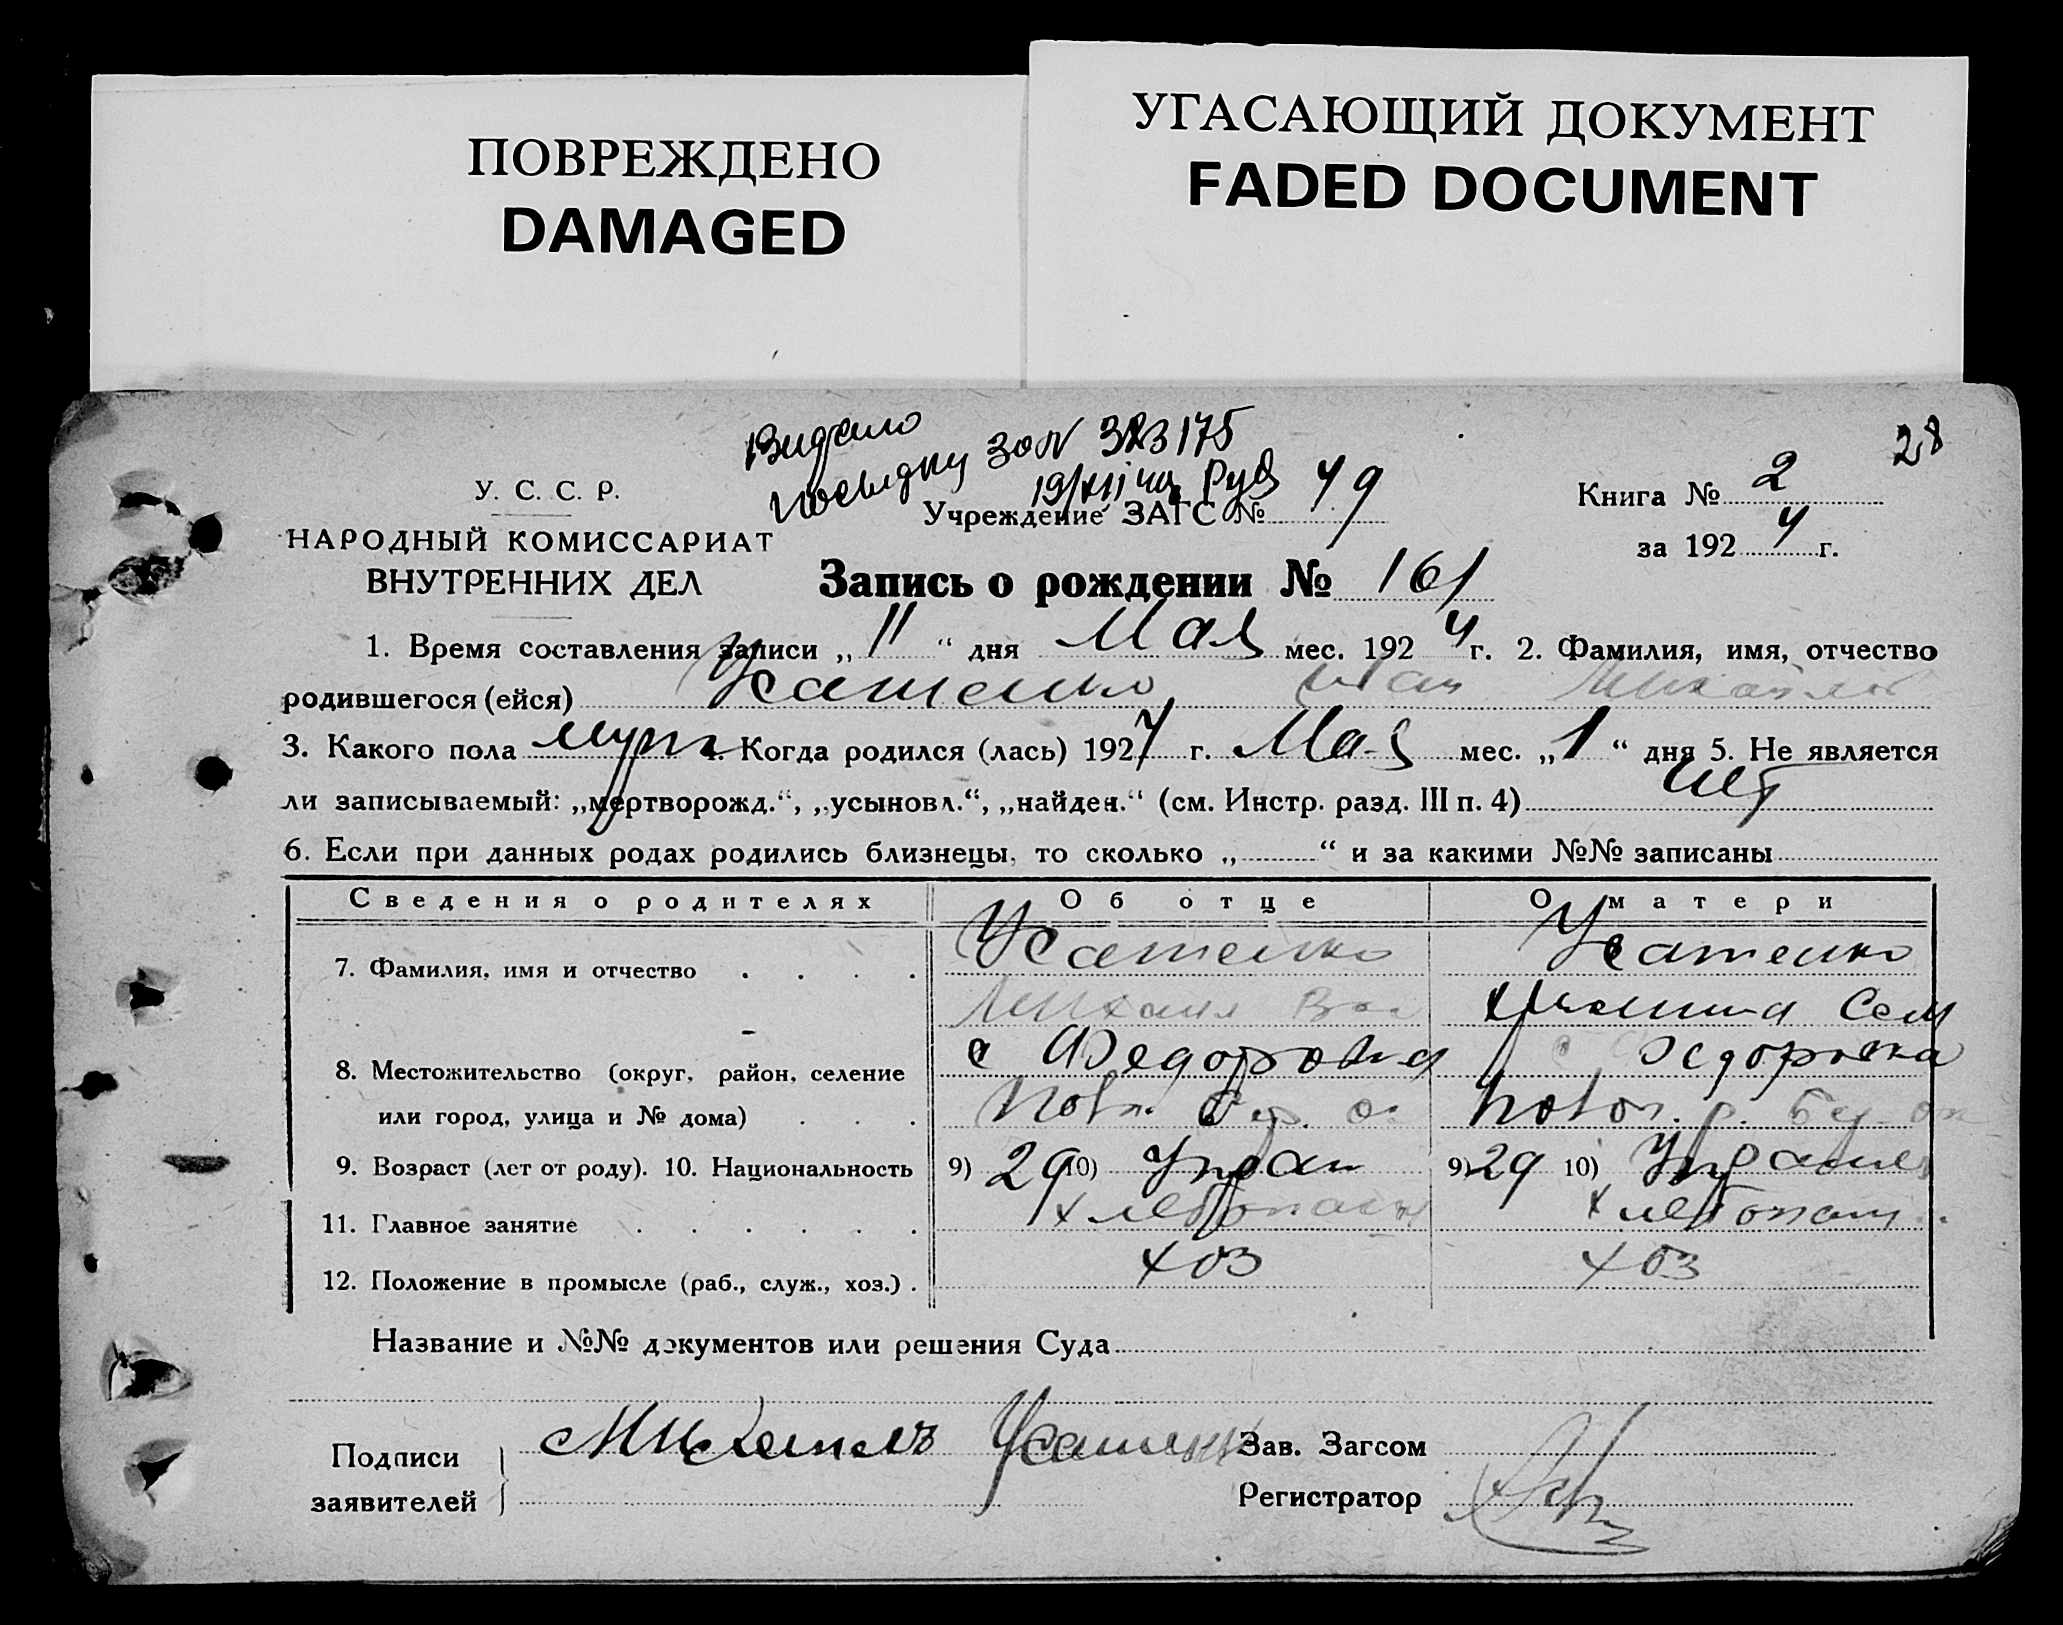 ПОВРЕЖДЕНО
DAMAGED
УГАСАЮЩИЙ ДОКУМЕНТ
FADED DOCUMENT
28
Видано
посвідку за N 323175
19/XII
У. С. С. Р.
НАРОДНЫЙ КОМИССАРИАТ
ВНУТРЕННИХ ДЕЛ
Учреждение ЗАГС № 49
Книга № 2
за 1924 г.
Запись о рождении № 161
1. Время составления записи „11“ дня Мая мес. 1924 г. 2. Фамилия, имя, отчество
родившегося (ейся) Усатенко Иван Михайлов
3. Какого пола муж 4. Когда родился (лась) 1924 г. Мая мес. „1“ дня 5. Не является
ли записываемый: „мертворожд.“, „усыновл.“, „найден.“ (см. Инстр. разд. III п. 4) нет
6. Если при данных родах родились близнецы, то сколько „ “ и за какими №№ записаны
Сведения о родителях Об отце О матери
7. Фамилия, имя и отчество Усатенко Усатенко
Михаил Вас Сем
8. Местожительство (округ, район, селение с Федоровка Федоровка
или город, улица и № дома)
9. Возраст (лет от роду). 10. Национальность 9) 29 10) Укра 9) 29 10) Украин
11. Главное занятие хлебопаш хлебопаш
12. Положение в промысле (раб., служ., хоз.) хоз хоз
Название и №№ документов или решения Суда
Подписи
заявителей
Михаилъ Усатенко
Зав. Загсом
Регистратор